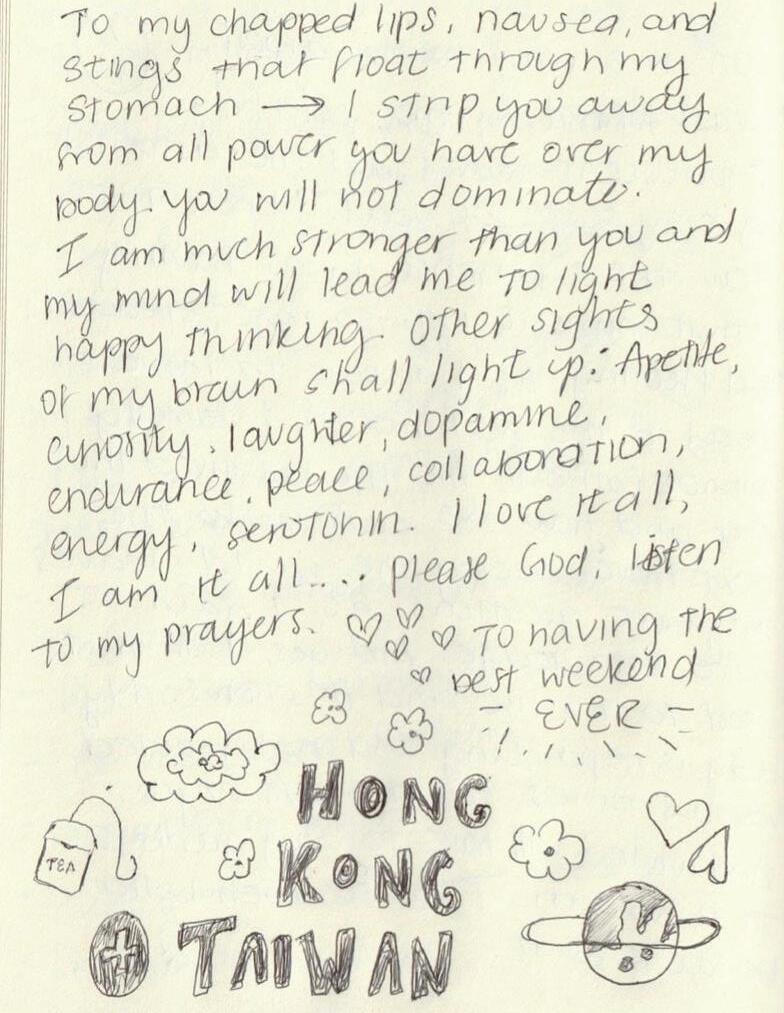 To my chapped lips, nausea, and
stings that float through my
stomach → I strip you away
from all power you have over my
body. you will not dominate.
I am much stronger than you and
my mind will lead me to light
happy thinking. Other sights
of my brain shall light up: Apetite,
curiosity, laughter, dopamine,
endurance, peace, collaboration,
energy, serotonin. I love it all,
I am it all.... please God, listen
to my prayers. ♡♡♡♡ To having the
♡ best weekend
- EVER -
HONG
KONG
TEA
TAIWAN